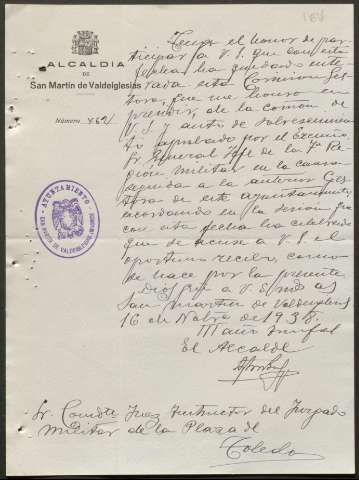 ALCALDIA
DE
San Martín de Valdeiglesias
Número 462
AYUNTAMIENTO
SAN MARTIN DE VALDEIGLESIAS (MADRID)
Tengo el honor de par-
ticipar a V.S. que con esta
fecha ha quedado ente-
rada esta Comision Ges-
tora, que me honro en
presidir, de la comun
V.S. y auto de sobreseimien-
to aprobado por el Excmo
Sr General Jefe de la 7ª Re-
gion Militar en la causa
seguida a la anterior Ges-
tora de este ayuntamiento,
acordando en la sesion que
con esta fecha ha celebrado
que se acuse a V.S. el
oportuno recibo, como
se hace por la presente
Dios gue a V.S. ms as
San Martin de Valdeiglesias
16 de Nobre de 1938.
III año triunfal
El Alcalde
Sr. Comdte Juez Instructor del Juzgado
Militar de la Plaza de
Toledo